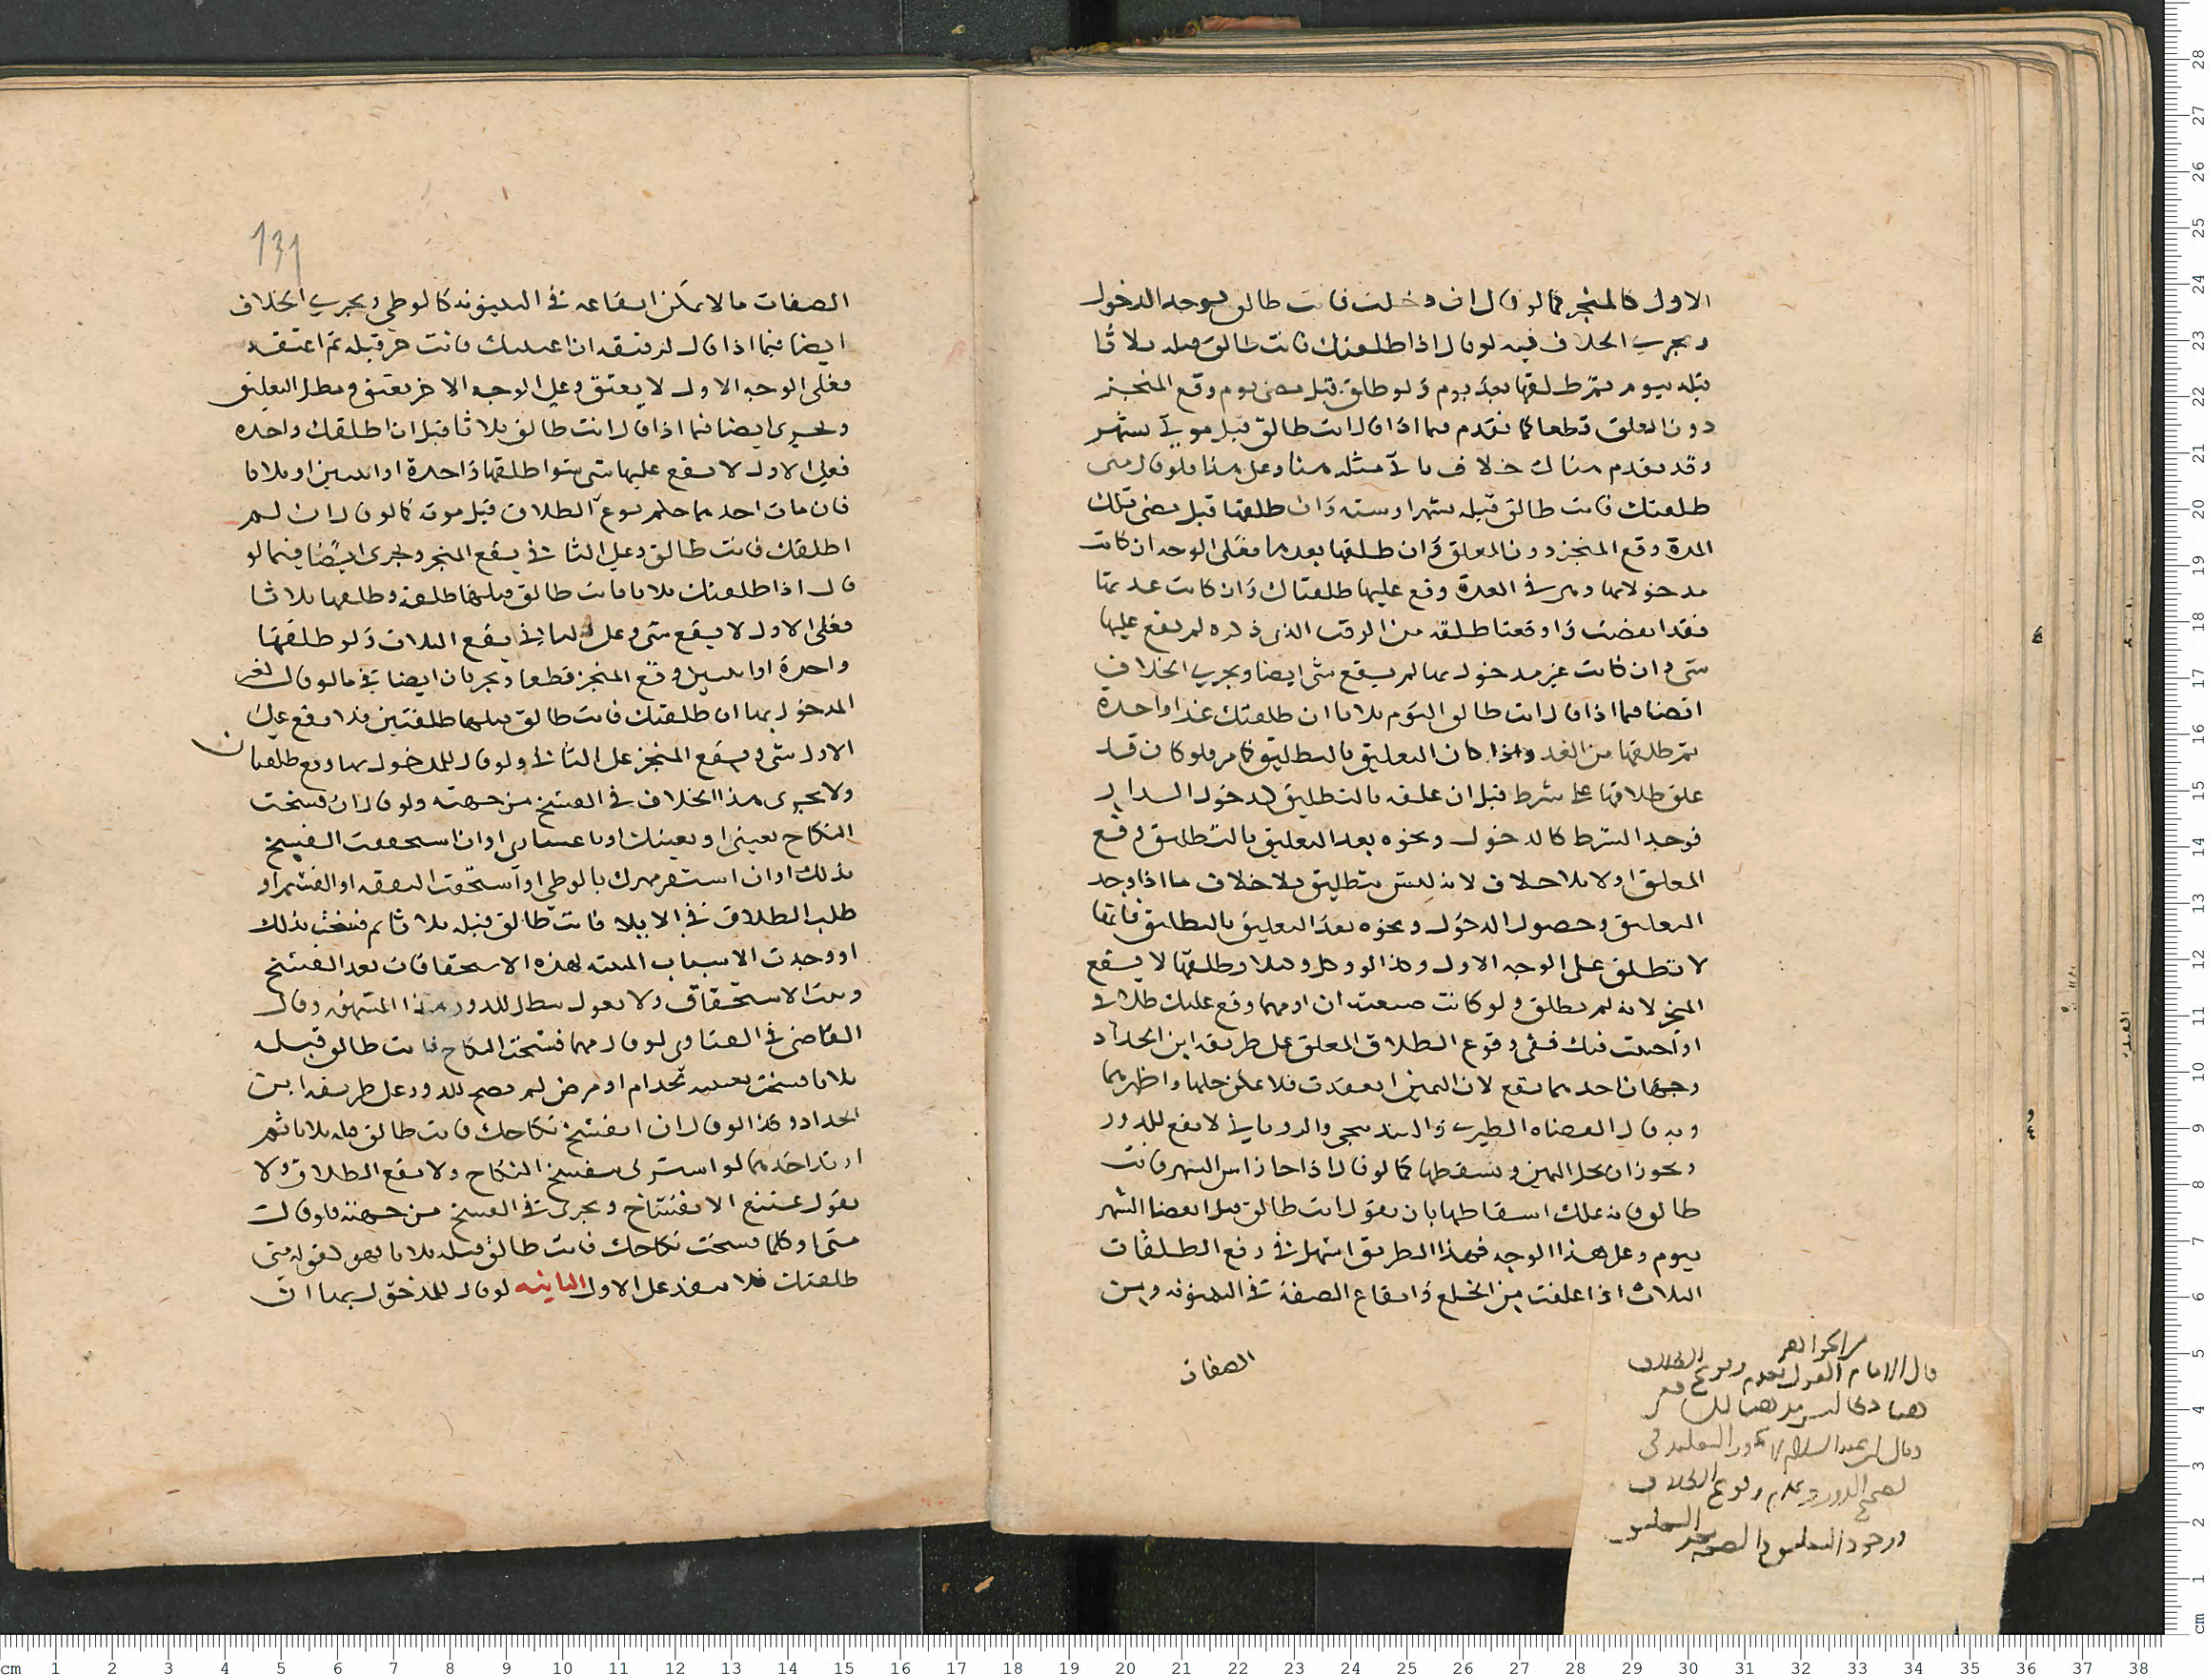 الاول كالمنجز كما لو قال ان دخلت فانت طالق بوجه الدخول
ويجري الخلاف فيه لو قال اذا طلقتك فانت طالق قبله ثلاثا
قبله بيوم ثم طلقها بعد يوم ولو طلق قبل مضي يوم وقع المنجز
دون المعلق قطعا كما تقدم فيما اذا قال انت طالق قبل موتي بشهر
وقد تقدم هناك خلاف يأتي مثله هنا وعلى هذا فلو قال متى
طلقتك فانت طالق قبله بشهر او سنة وان طلقها قبل مضي تلك
المدة وقع المنجز دون المعلق وان طلقها بعدها فعلى الوجه ان كانت
مدخولا بها وهي في العدة وقع عليها طلقتان وان كانت عدتها
فقد انقضت واوقعنا طلقة من الوقت الذي ذكره لم يقع عليها
شي وان كانت غير مدخول بها لم يقع شي ايضا ويجري الخلاف
ايضا فيما اذا قال انت طالق اليوم ثلاثا ان طلقتك غدا واحدة
ثم طلقها من الغد واذا كان التعليق بالتطليق كما مر فلو كان قد
علق طلاقها على شرط قبل ان علقه بالتطليق كدخول الدار
فوجد الشرط كالدخول ونحوه بعد التعليق بالتطليق وقع
المعلق اولا بلا خلاف لانه ليس بتطليق بلا خلاف ما اذا وجد
التعليق وحصول الدخول ونحوه بعد التعليق بالتطليق فانها
لا تطلق على الوجه الاول وكذا لو وكل وكيلا وطلقها لا يقع
المنجز لانه لم يطلق ولو كانت صيغته ان او مهما وقع عليك طلاقي
او احنثت فيك ففي وقوع الطلاق المعلق على طريقة ابن الحداد
وجهان احدهما يقع لان اليمين انعقدت فلا يمكن حلها واظهرهما
وبه قال القضاه الطبري والبندنيجي والروياني لا يقع للدور
ويجوز ان يحل اليمين ويسقطها كما لو قال اذا جا راس الشهر فانت
طالق فانه يملك اسقاطها بان يقول انت طالق قبل انقضا الشهر
بيوم وعلى هذا الوجه فهذا الطريق اسهل في دفع الطلقات
الثلاث اذا علقت من الخلع وايقاع الصفة في البينونه وبين
الصفات
من الجواهر
قال الامام القول بعدم وقوع الطلاق
وقال ابن عبد السلام لا يجوز التقليد في
تصحيح الدور وعدم وقوع الطلاق
131
الصفات ما لا يمكن ايقاعه في البينونه كالوطي ويجري الخلاف
ايضا فيما اذا قال لرقيقه ان اعتقتك فانت حر قبله ثم اعتقه
فعلى الوجه الاول لا يعتق وعلى الوجه الاخر يعتق وبطل التعليق
ويجري ايضا فيما اذا قال انت طالق ثلاثا قبل ان اطلقك واحده
فعلى الاول لا يقع عليها شي سوا طلقها واحدة او اثنتين او ثلاثا
فان مات احدهما حكم بوقوع الطلاق قبل موته كما لو قال ان لم
اطلقك فانت طالق وعلى الثاني يقع المنجز ويجري ايضا فيما لو
قال اذا طلقتك ثلاثا فانت طالق قبلها طلقة وطلقها ثلاثا
فعلى الاول لا يقع شي وعلى الثاني يقع الثلاث ولو طلقها
واحدة او اثنتين وقع المنجز قطعا ويجريان ايضا في ما لو قال لغير
المدخول بها ان طلقتك فانت طالق قبلها طلقتين فلا يقع على
الاول شي ويقع المنجز على الثاني ولو قال للمدخول بها وقع طلقتان
ولا يجري هذا الخلاف في الفسخ من جهته ولو قال ان فسخت
النكاح بعيبي او بعيبك او باعساري او ان استحقيت الفسخ
بذلك او ان استقر مهرك بالوطي او استحقيت النفقه او القسم او
طلب الطلاق في الايلا فانت طالق قبله ثلاثا ثم فسخت بذلك
او وجدت الاسباب المثبتة لهذه الاستحقاقات نفد الفسخ
وثبت الاستحقاق ولا نقول يبطل للدور هذا المشهور وقال
القاضي في الفتاوى لو قال مهما فسخت النكاح فانت طالق قبله
ثلاثا ففسخت بعيبه بجدام او مرض لم يصح للدور على طريقة ابن
الحداد وكذا لو قال ان انفسخ نكاحك فانت طالق قبله ثلاثا ثم
ارتد احدهما لو اشترى ينفسخ النكاح ولا يقع الطلاق ولا
نقول يمتنع الانفساخ ويجري في الفسخ من جهته فلو قال
متى او كلما فسخت نكاحك فانت طالق قبله ثلاثا فهو كقوله متى
طلقتك فلا ينفذ على الاول الثانية لو قال للمدخول بها ان